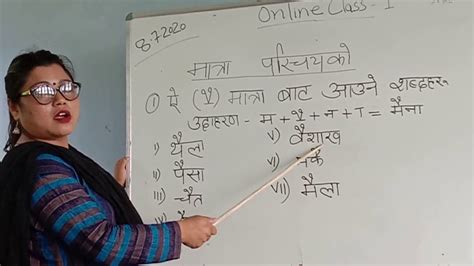 8 7 2020
Online Class - I
मात्रा परिचयको
① ऐ (ै) मात्रा बाट आउने शब्दहरू
उदाहरण - म + ै + न + ा = मैना
i) थैला
ii) पैसा
iii) चैत
iv)
v) वैशाख
vi)
vii) मैला